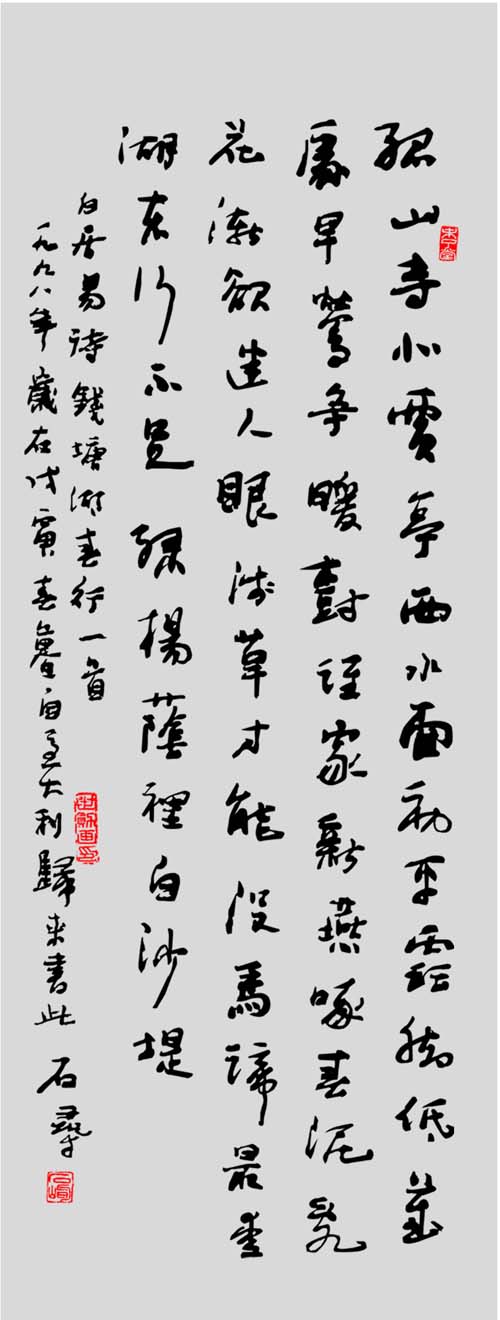 孤山寺北賈亭西水面初平雲脚低幾
處早鶯爭暖樹誰家新燕啄春泥亂
花漸欲迷人眼淺草才能沒馬蹄最愛
湖東行不足綠楊蔭裡白沙堤
白居易詩錢塘湖春行一首
一九九八年歲在戊寅春暮自意大利歸來書此 石